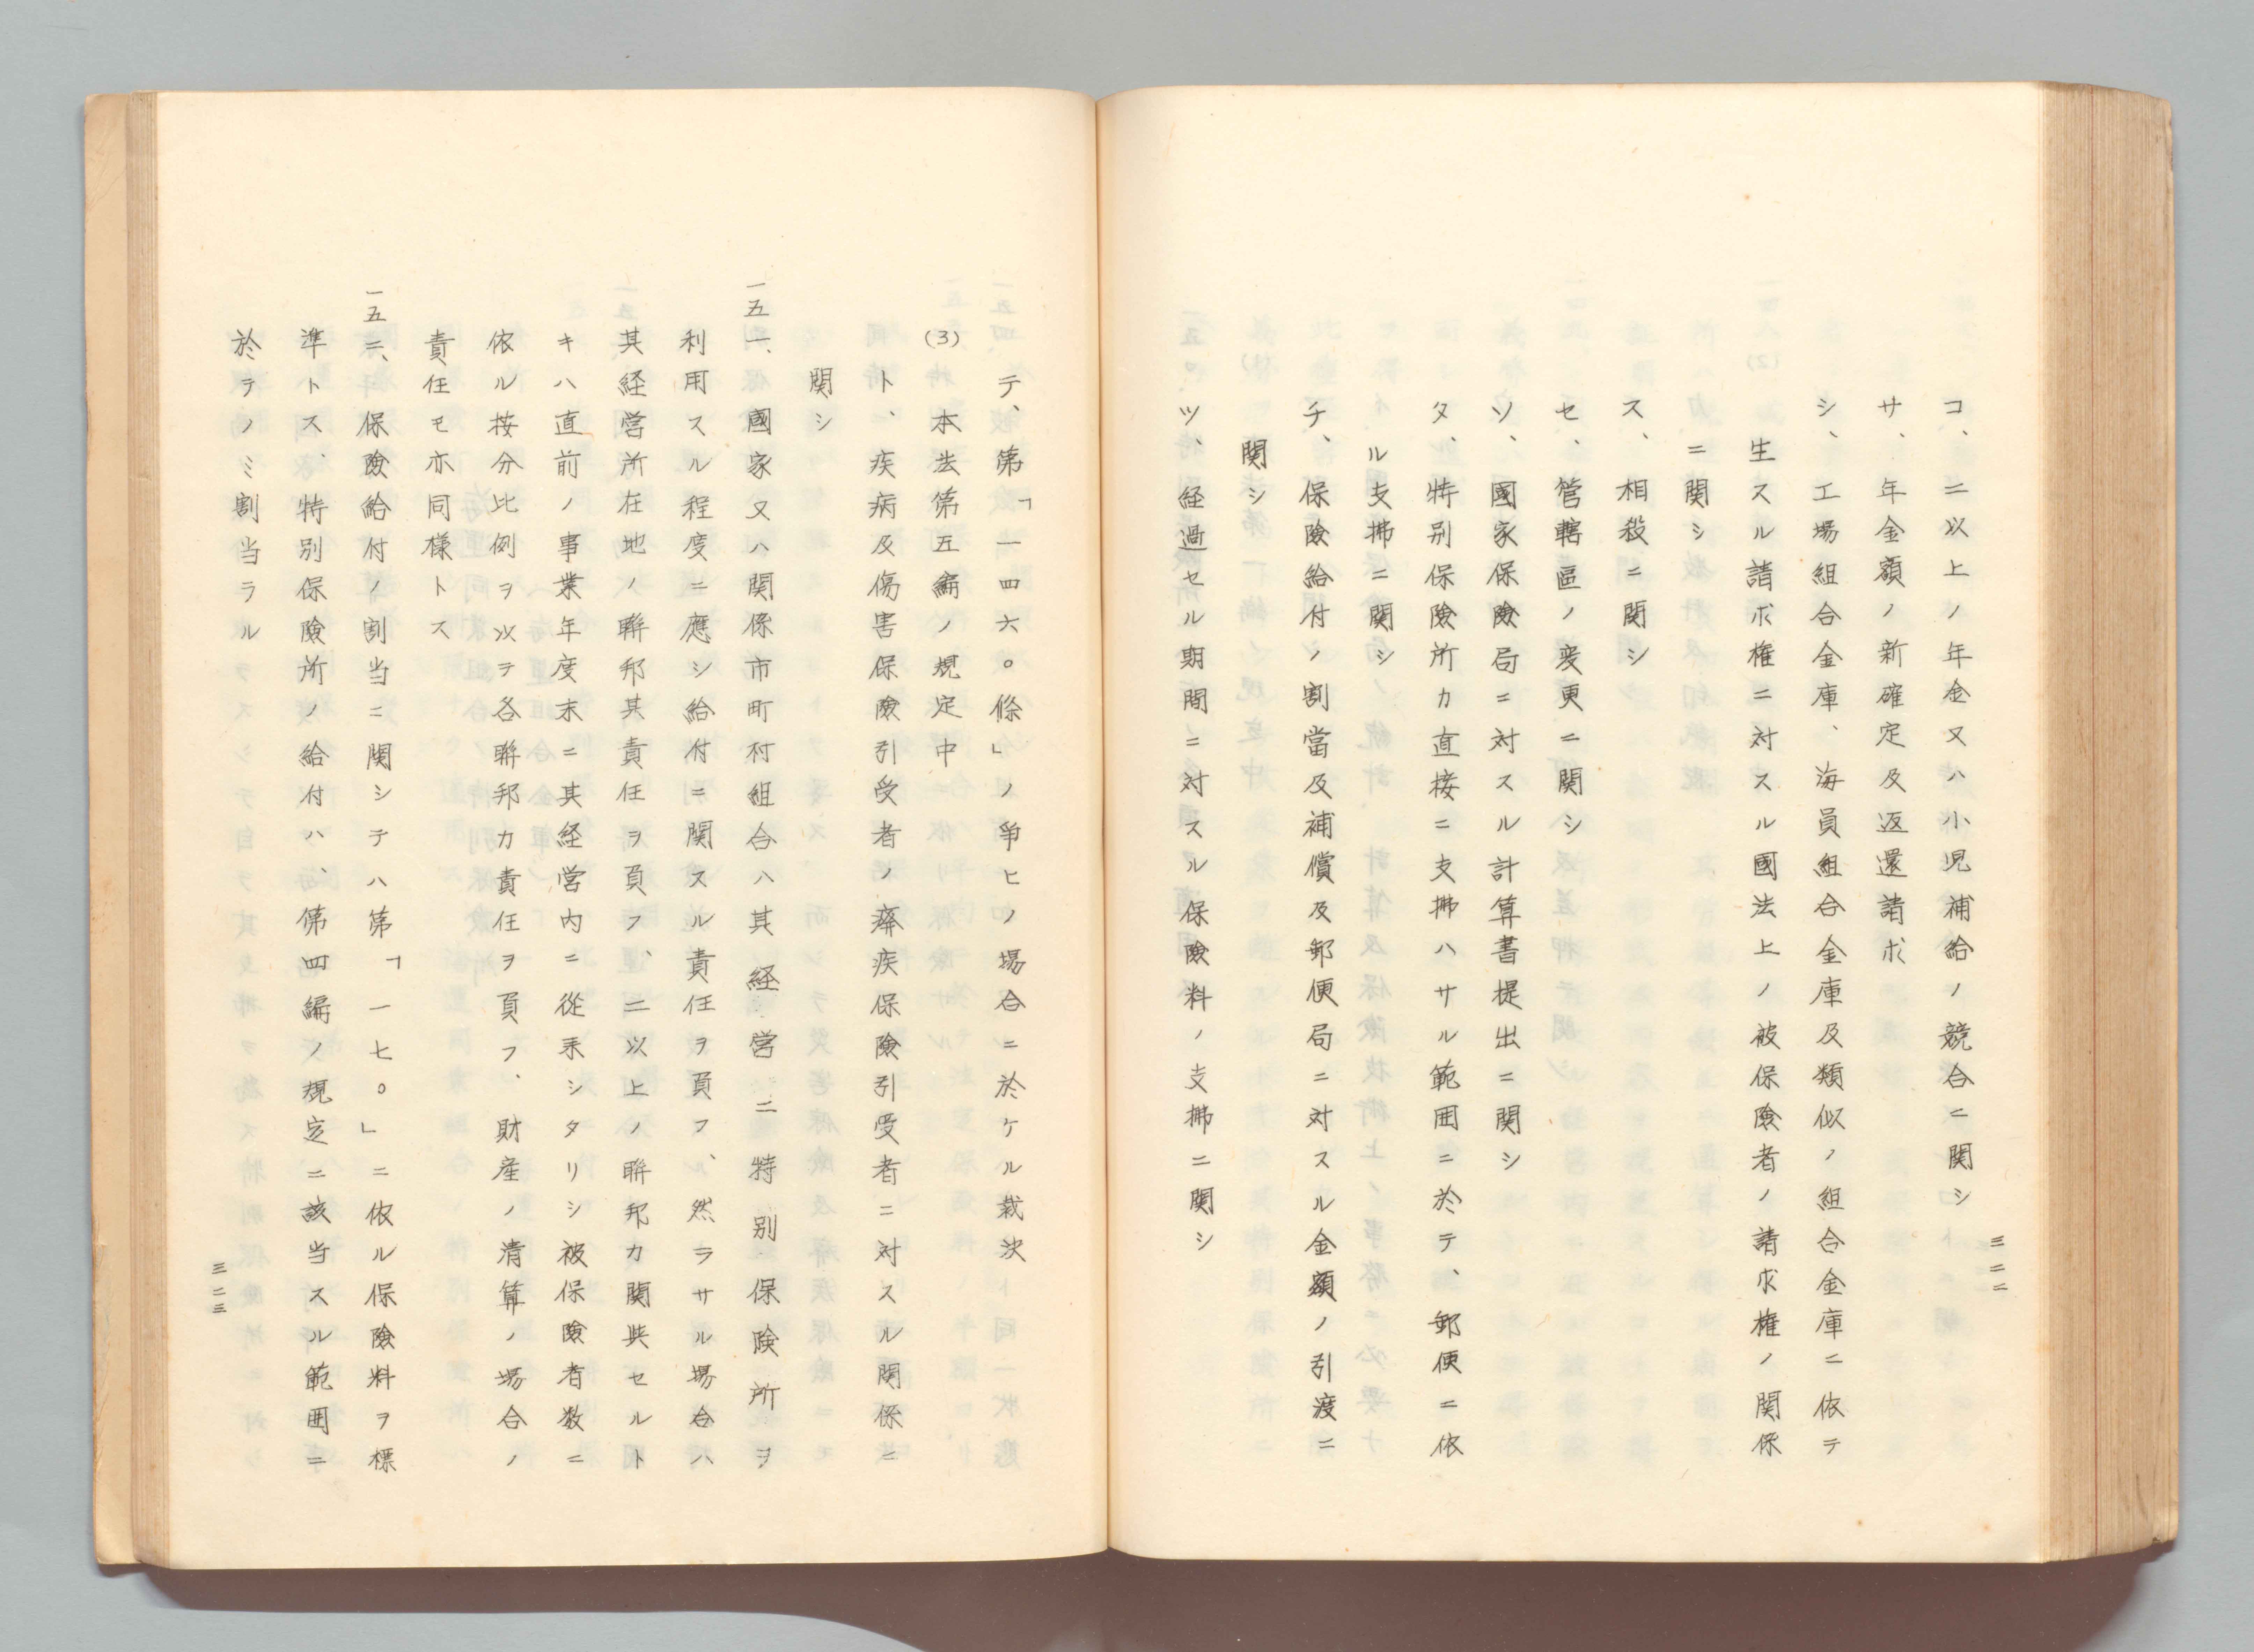 コ、二以上ノ年金又ハ小児補給ノ競合ニ関シ
サ、年金額ノ新確定及返還請求
シ、工場組合金庫、海員組合金庫及類似ノ組合金庫ニ依テ
生スル請求権ニ対スル國法上ノ被保険者ノ請求権ノ関係
ニ関シ
ス、相殺ニ関シ
セ、管轄區ノ変更ニ関シ
ソ、國家保険局ニ対スル計算書提出ニ関シ
タ、特別保険所カ直接ニ支拂ハサル範囲ニ於テ、郵便ニ依
ル支拂ニ関シ
チ、保険給付ノ割當及補償及郵便局ニ対スル金額ノ引渡ニ
関シ
ツ、経過セル期間ニ対スル保険料ノ支拂ニ関シ
三二二
テ、第「一四六〇條」ノ争ヒノ場合ニ於ケル裁決
(3) 本法第五編ノ規定中
ト、疾病及傷害保険引受者ノ癈疾保険引受者ニ対スル関係ニ
関シ
一五一、國家又ハ関係市町村組合ハ其経営ニ特別保険所ヲ
利用スル程度ニ應シ給付ニ関スル責任ヲ負フ、然ラサル場合ハ
其経営所在地ノ聯邦其責任ヲ負フ、二以上ノ聯邦カ関与セルト
キハ直前ノ事業年度末ニ其経営内ニ從来シタリシ被保険者数ニ
依ル按分比例ヲ以ヲ各聯邦カ責任ヲ負フ、財産ノ清算ノ場合ノ
責任モ亦同様トス
一五二、保険給付ノ割当ニ関シテハ第「一七〇」ニ依ル保険料ヲ標
準トス、特別保険所ノ給付ハ、第四編ノ規定ニ該当スル範囲ニ
於ラノミ割当ラル
三二三